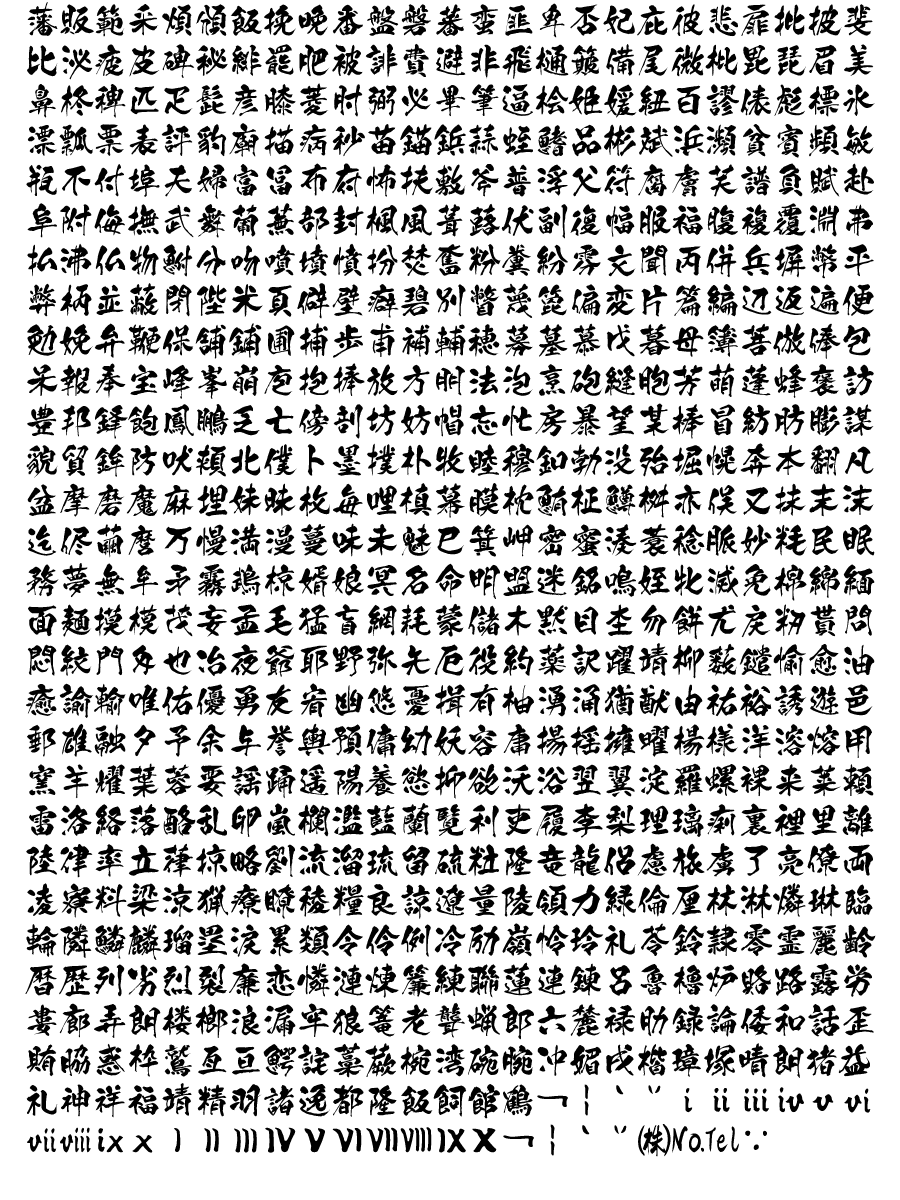 藩販範釆煩頒飯挽晩番盤磐蕃蛮匪卑否妃庇彼悲扉批披斐
比泌疲皮碑秘緋罷肥被誹費避非飛樋簸備尾微枇毘琵眉美
鼻柊稗匹疋髭彦膝菱肘弼必畢筆逼桧姫媛紐百謬俵彪標氷
漂瓢票表評豹廟描病秒苗錨鋲蒜蛭鰭品彬斌浜瀕貧賓頻敏
瓶不付埠夫婦富冨布府怖扶敷斧普浮父符腐膚芙譜負賦赴
阜附侮撫武舞葡蕪部封楓風葺蕗伏副復幅服福腹複覆淵弗
払沸仏物鮒分吻噴墳憤扮焚奮粉糞紛雰文聞丙併兵塀幣平
弊柄並蔽閉陛米頁僻壁癖碧別瞥蔑箆偏変片篇編辺返遍便
勉娩弁鞭保舗鋪圃捕歩甫補輔穂募墓慕戊暮母簿菩倣俸包
呆報奉宝峰峯崩庖抱捧放方朋法泡烹砲縫胞芳萌蓬蜂褒訪
豊邦鋒飽鳳鵬乏亡傍剖坊妨帽忘忙房暴望某棒冒紡肪膨謀
貌貿鉾防吠頬北僕卜墨撲朴牧睦穆釦勃没殆堀幌奔本翻凡
盆摩磨魔麻埋妹昧枚毎哩槙幕膜枕鮪柾鱒桝亦俣又抹末沫
迄侭繭麿万慢満漫蔓味未魅巳箕岬密蜜湊蓑稔脈妙粍民眠
務夢無牟矛霧鵡椋婿娘冥名命明盟迷銘鳴姪牝滅免棉綿緬
面麺摸模茂妄孟毛猛盲網耗蒙儲木黙目杢勿餅尤戻籾貰問
悶紋門匁也冶夜爺耶野弥矢厄役約薬訳躍靖柳薮鑓愉愈油
癒諭輸唯佑優勇友宥幽悠憂揖有柚湧涌猶猷由祐裕誘遊邑
郵雄融夕予余与誉輿預傭幼妖容庸揚揺擁曜楊様洋溶熔用
窯羊耀葉蓉要謡踊遥陽養慾抑欲沃浴翌翼淀羅螺裸来莱頼
雷洛絡落酪乱卵嵐欄濫藍蘭覧利吏履李梨理璃痢裏裡里離
陸律率立葎掠略劉流溜琉留硫粒隆竜龍侶慮旅虜了亮僚両
凌寮料梁涼猟療瞭稜糧良諒遼量陵領力緑倫厘林淋燐琳臨
輪隣鱗麟瑠塁涙累類令伶例冷励嶺怜玲礼苓鈴隷零霊麗齢
暦歴列劣烈裂廉恋憐漣煉簾練聯蓮連錬呂魯櫓炉賂路露労
婁廊弄朗楼榔浪漏牢狼篭老聾蝋郎六麓禄肋録論倭和話歪
賄脇惑枠鷲亙亘鰐詫藁蕨椀湾碗腕沖媚戌楷瑋塚晴朗猪益
礼神祥福靖精羽諸逸都隆飯飼館鶴￢￤＇＂ ⅰⅱⅲⅳⅴⅵ
ⅶⅷⅸⅹⅠⅡⅢⅣⅤⅥⅦⅧⅨⅩ￢￤＇＂㈱№℡∵